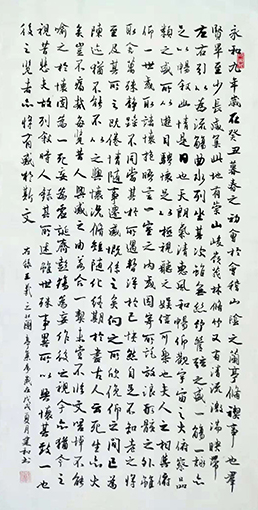 永和九年歲在癸丑暮春之初會於會稽山陰之蘭亭脩禊事也群
賢畢至少長咸集此地有崇山峻嶺茂林脩竹又有清流激湍映帶
左右引以為流觴曲水列坐其次雖無絲竹管弦之盛一觴一詠亦
足以暢敘幽情是日也天朗氣清惠風和暢仰觀宇宙之大俯察品
類之盛所以遊目騁懷足以極視聽之娛信可樂也夫人之相與俯
仰一世或取諸懷抱晤言一室之內或因寄所託放浪形骸之外雖
取舍萬殊靜躁不同當其欣於所遇暫得於己怏然自足不知老之將
至及其所之既倦情隨事遷感慨係之矣向之所欣俛仰之間已為
陳迹猶不能不以之興懷況脩短隨化終期於盡古人云死生亦大
矣豈不痛哉每覽昔人興感之由若合一契未嘗不臨文嗟悼不能
喻之於懷固知一死生為虛誕齊彭殤為妄作後之視今亦猶今之
視昔悲夫故列敘時人錄其所述雖世殊事異所以興懷其致一也
後之覽者亦將有感於斯文
右錄王羲之蘭亭集序歲在戊戌夏月建和書